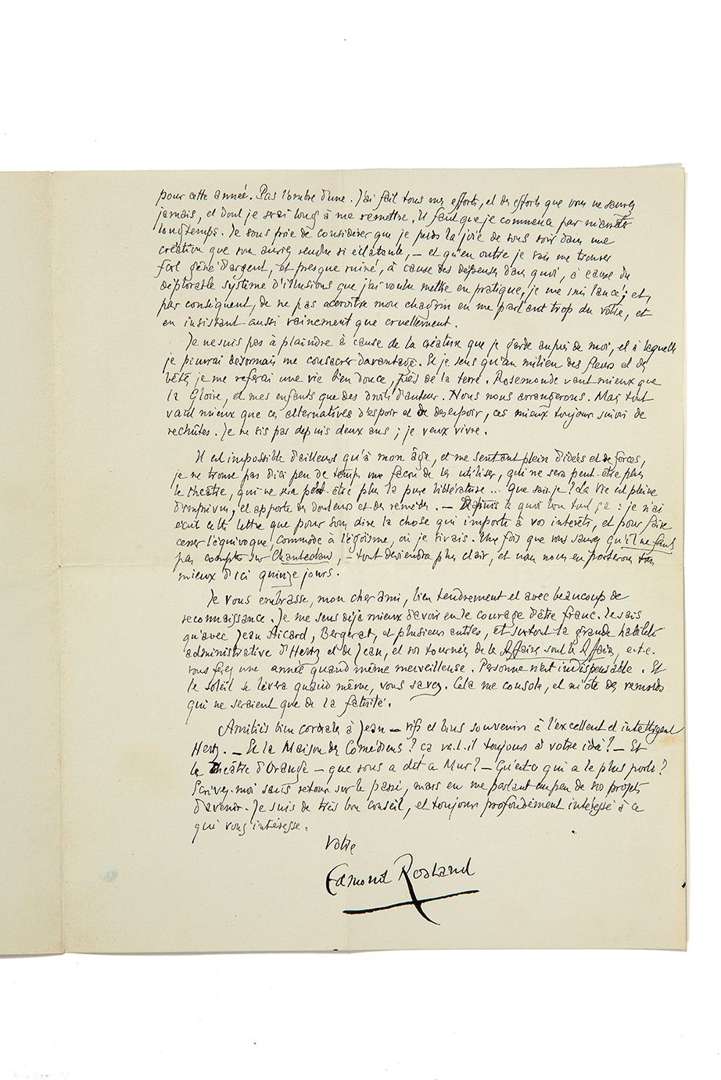 pour cette année. Pas l'ombre d'une. J'ai fait tous mes efforts, et des efforts que vous ne saurez
jamais, et dont je serai long à me remettre. Il faut que je commence par
longtemps. Je vous prie de considérer que je perds la joie de vous voir dans une
création que vous auriez rendue si éclatante, — et qu'en outre je vais me trouver
fort gêné d'argent, et presque ruiné, à cause des dépenses dans quoi, à cause du
déplorable système d'illusions que j'ai voulu mettre en pratique, je me suis lancé; et,
par conséquent, de ne pas accroître mon chagrin en me parlant trop du vôtre, et
en insistant aussi vainement que cruellement.
Je ne suis pas à plaindre à cause de la créature que je garde auprès de moi, et à laquelle
je pourrai désormais me consacrer davantage. Et je sens qu'au milieu des fleurs et des
bêtes, je me referai une vie bien douce, près de la terre. Rosemonde vaut mieux que
la Gloire, et mes enfants que des droits d'auteur. Nous nous arrangerons. Mais tout
vaut mieux que ces alternatives d'espoir et de désespoir, ces mieux toujours suivis de
rechutes. Je ne vis pas depuis deux ans; je veux vivre.
Il est impossible d'ailleurs qu'à mon âge, et me sentant plein d'idées et de forces,
je ne trouve pas d'ici peu de temps une façon de les utiliser, qui ne sera peut-être plus
le théâtre, qui ne sera peut-être plus la pure littérature... Que sais-je? La vie est pleine
d'imprévu, et apporte des douleurs et des remèdes. — à quoi bon tout ça: je n'ai
écrit cette lettre que pour vous dire la chose qui importe à vos intérêts, et pour faire
cesser l'équivoque, commode à l'égoïsme, où je vivais. Une fois que vous saurez qu'il ne faut
pas compter sur Chantecler, — tout deviendra plus clair, et nous nous en porterons tous
mieux d'ici quinze jours.
Je vous embrasse, mon cher ami, bien tendrement et avec beaucoup de
reconnaissance. Je me sens déjà mieux d'avoir eu le courage d'être franc. Je sais
qu'avec Jean Aicard, Bergerat, et plusieurs autres, et surtout la grande habileté
administrative d'Hertz et de Jean, et vos tournées de Les Affaires sont les Affaires, e.t.c.
vous ferez une année quand même merveilleuse. Personne n'est indispensable. Et
le soleil se lèvera quand même, vous savez. Cela me console, et m'ôte des remords
qui ne seraient que de la fatuité.
Amitiés bien cordiales à Jean — vifs et bons souvenirs à l'excellent et intelligent
Hertz. — Et la Maison des Comédiens? ça va-t-il toujours à votre idée? — Et
le Théâtre d'Orange — que vous a dit ce Mur? — Qu'est-ce qui a le plus porté?
Écrivez-moi sans retour sur le passé, mais en me parlant un peu de vos projets
d'avenir. Je suis de très bon conseil, et toujours profondément intéressé à ce
qui vous intéresse.
Votre
Edmond Rostand